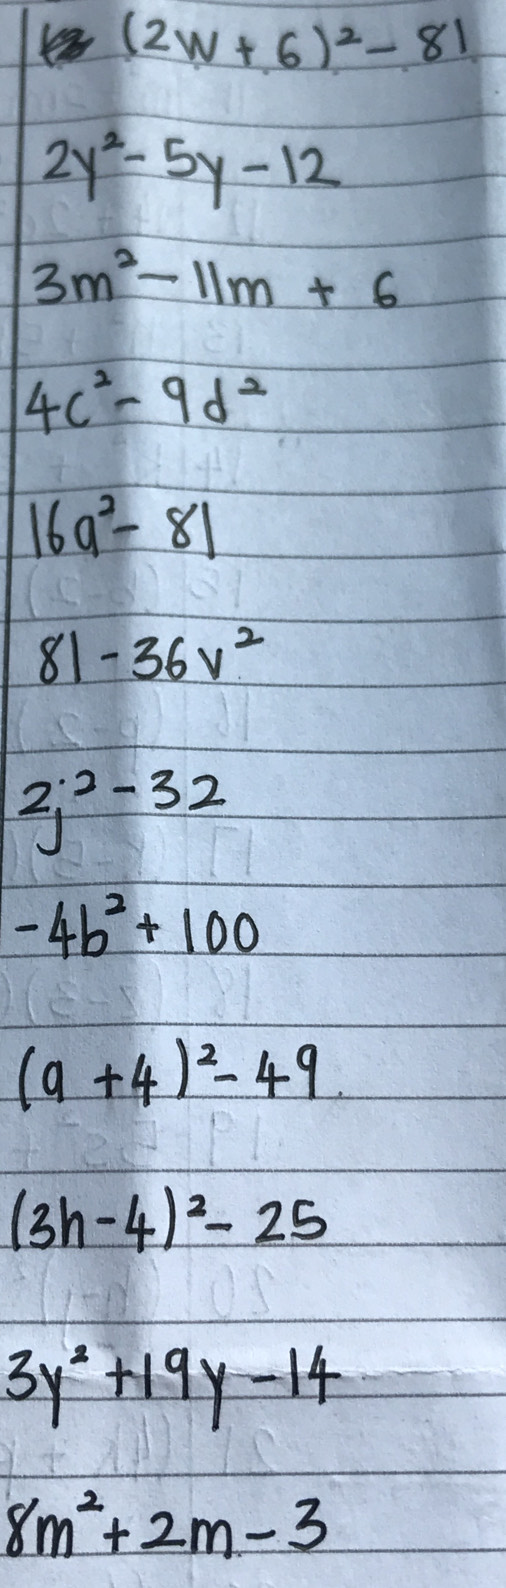 (2w + 6)² - 81
2y² - 5y - 12
3m² - 11m + 6
4c² - 9d²
16a² - 81
81 - 36v²
2j² - 32
-4b² + 100
(a + 4)² - 49
(3h - 4)² - 25
3y² + 19y - 14
8m² + 2m - 3